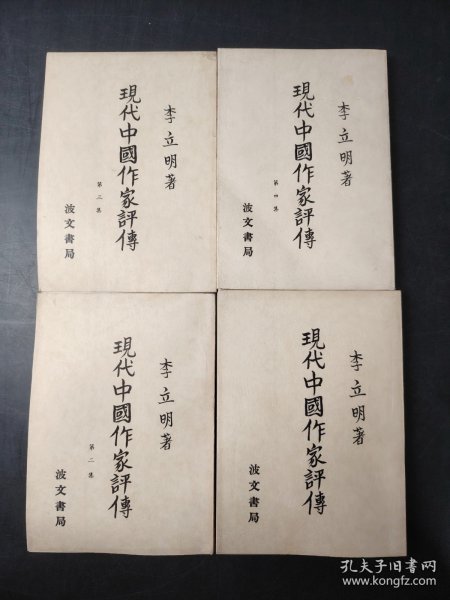 李立明著
現代中國作家評傳
第三集
波文書局
李立明著
現代中國作家評傳
第四集
波文書局
李立明著
現代中國作家評傳
第二集
波文書局
李立明著
現代中國作家評傳
波文書局
孔夫子旧书网
www.kongfz.com